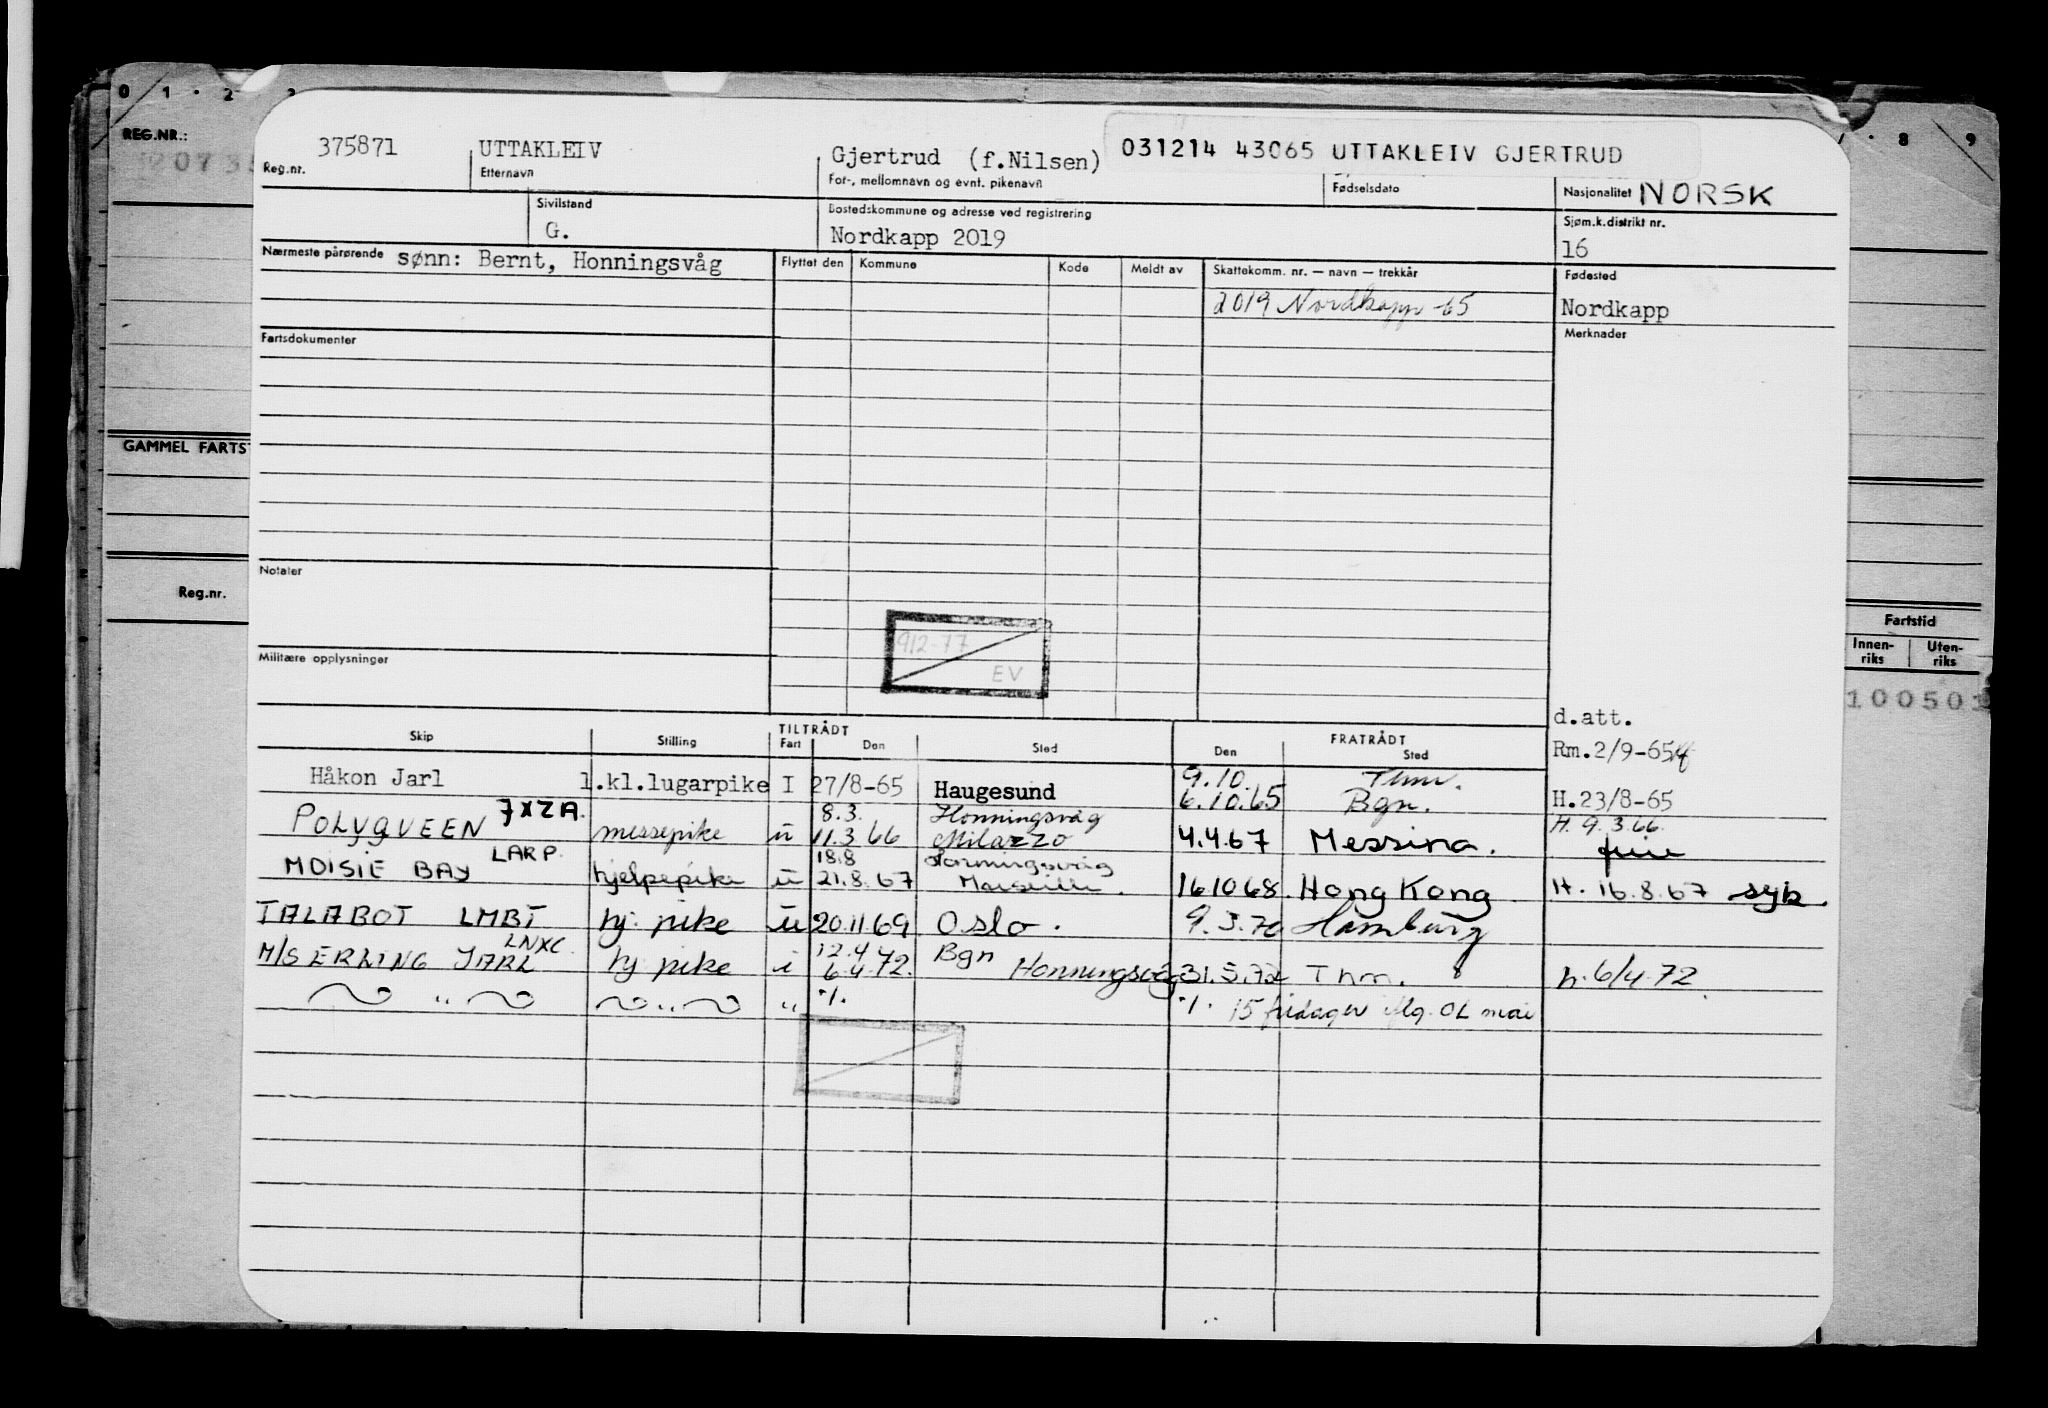 0 1 · 2 3
7 · 8 9
REG.NR.:
375871 UTTAKLEIV Gjertrud (f.Nilsen) 031214 43065 UTTAKLEIV GJERTRUD
Reg.nr. Etternavn For-, mellomnavn og evnt. pikenavn Fødselsdato Nasjonalitet NORSK
Sivilstand Bostedskommune og adresse ved registrering Sjøm.k.distrikt nr.
G. Nordkapp 2019 16
Nærmeste pårørende sønn: Bernt, Honningsvåg Flyttet den Kommune Kode Meldt av Skattekomm. nr. — navn — trekkår Fødested
2019 Nordkapp -65 Nordkapp
Fartsdokumenter Merknader
GAMMEL FARTS
Notater
Reg.nr.
Fartstid
912-77
EV
Innen-riks Uten-riks
Militære opplysninger
100501
d.att.
Skip Stilling TILTRÅDT Fart Den Sted Den FRATRÅDT Sted Rm.2/9-65
Håkon Jarl 1.kl.lugarpike I 27/8-65 Haugesund 9.10. Thm.
6.10.65 Bgn. H.23/8-65
POLYQUEEN JXZA. messepike u 8.3. Honningsvåg
11.3.66 Milazzo 4.4.67 Messina. H. 9.3.66.
MOISIE BAY LARP. hjelpepike u 18.8 Honningsvåg
21.8.67 Marseille. 16.10.68. Hong Kong H. 16.8.67 syk.
TALABOT LMBT hj. pike u 20.11.69 Oslo. 9.3.70 Hamburg
M/S ERLING JARL LNXC hj pike i 12.4 Bgn
6.4.72. Honningsvåg 31.5.72 Thm. h. 6/4.72
" " " ·/. ·/. 15 fridager iflg. OL mai